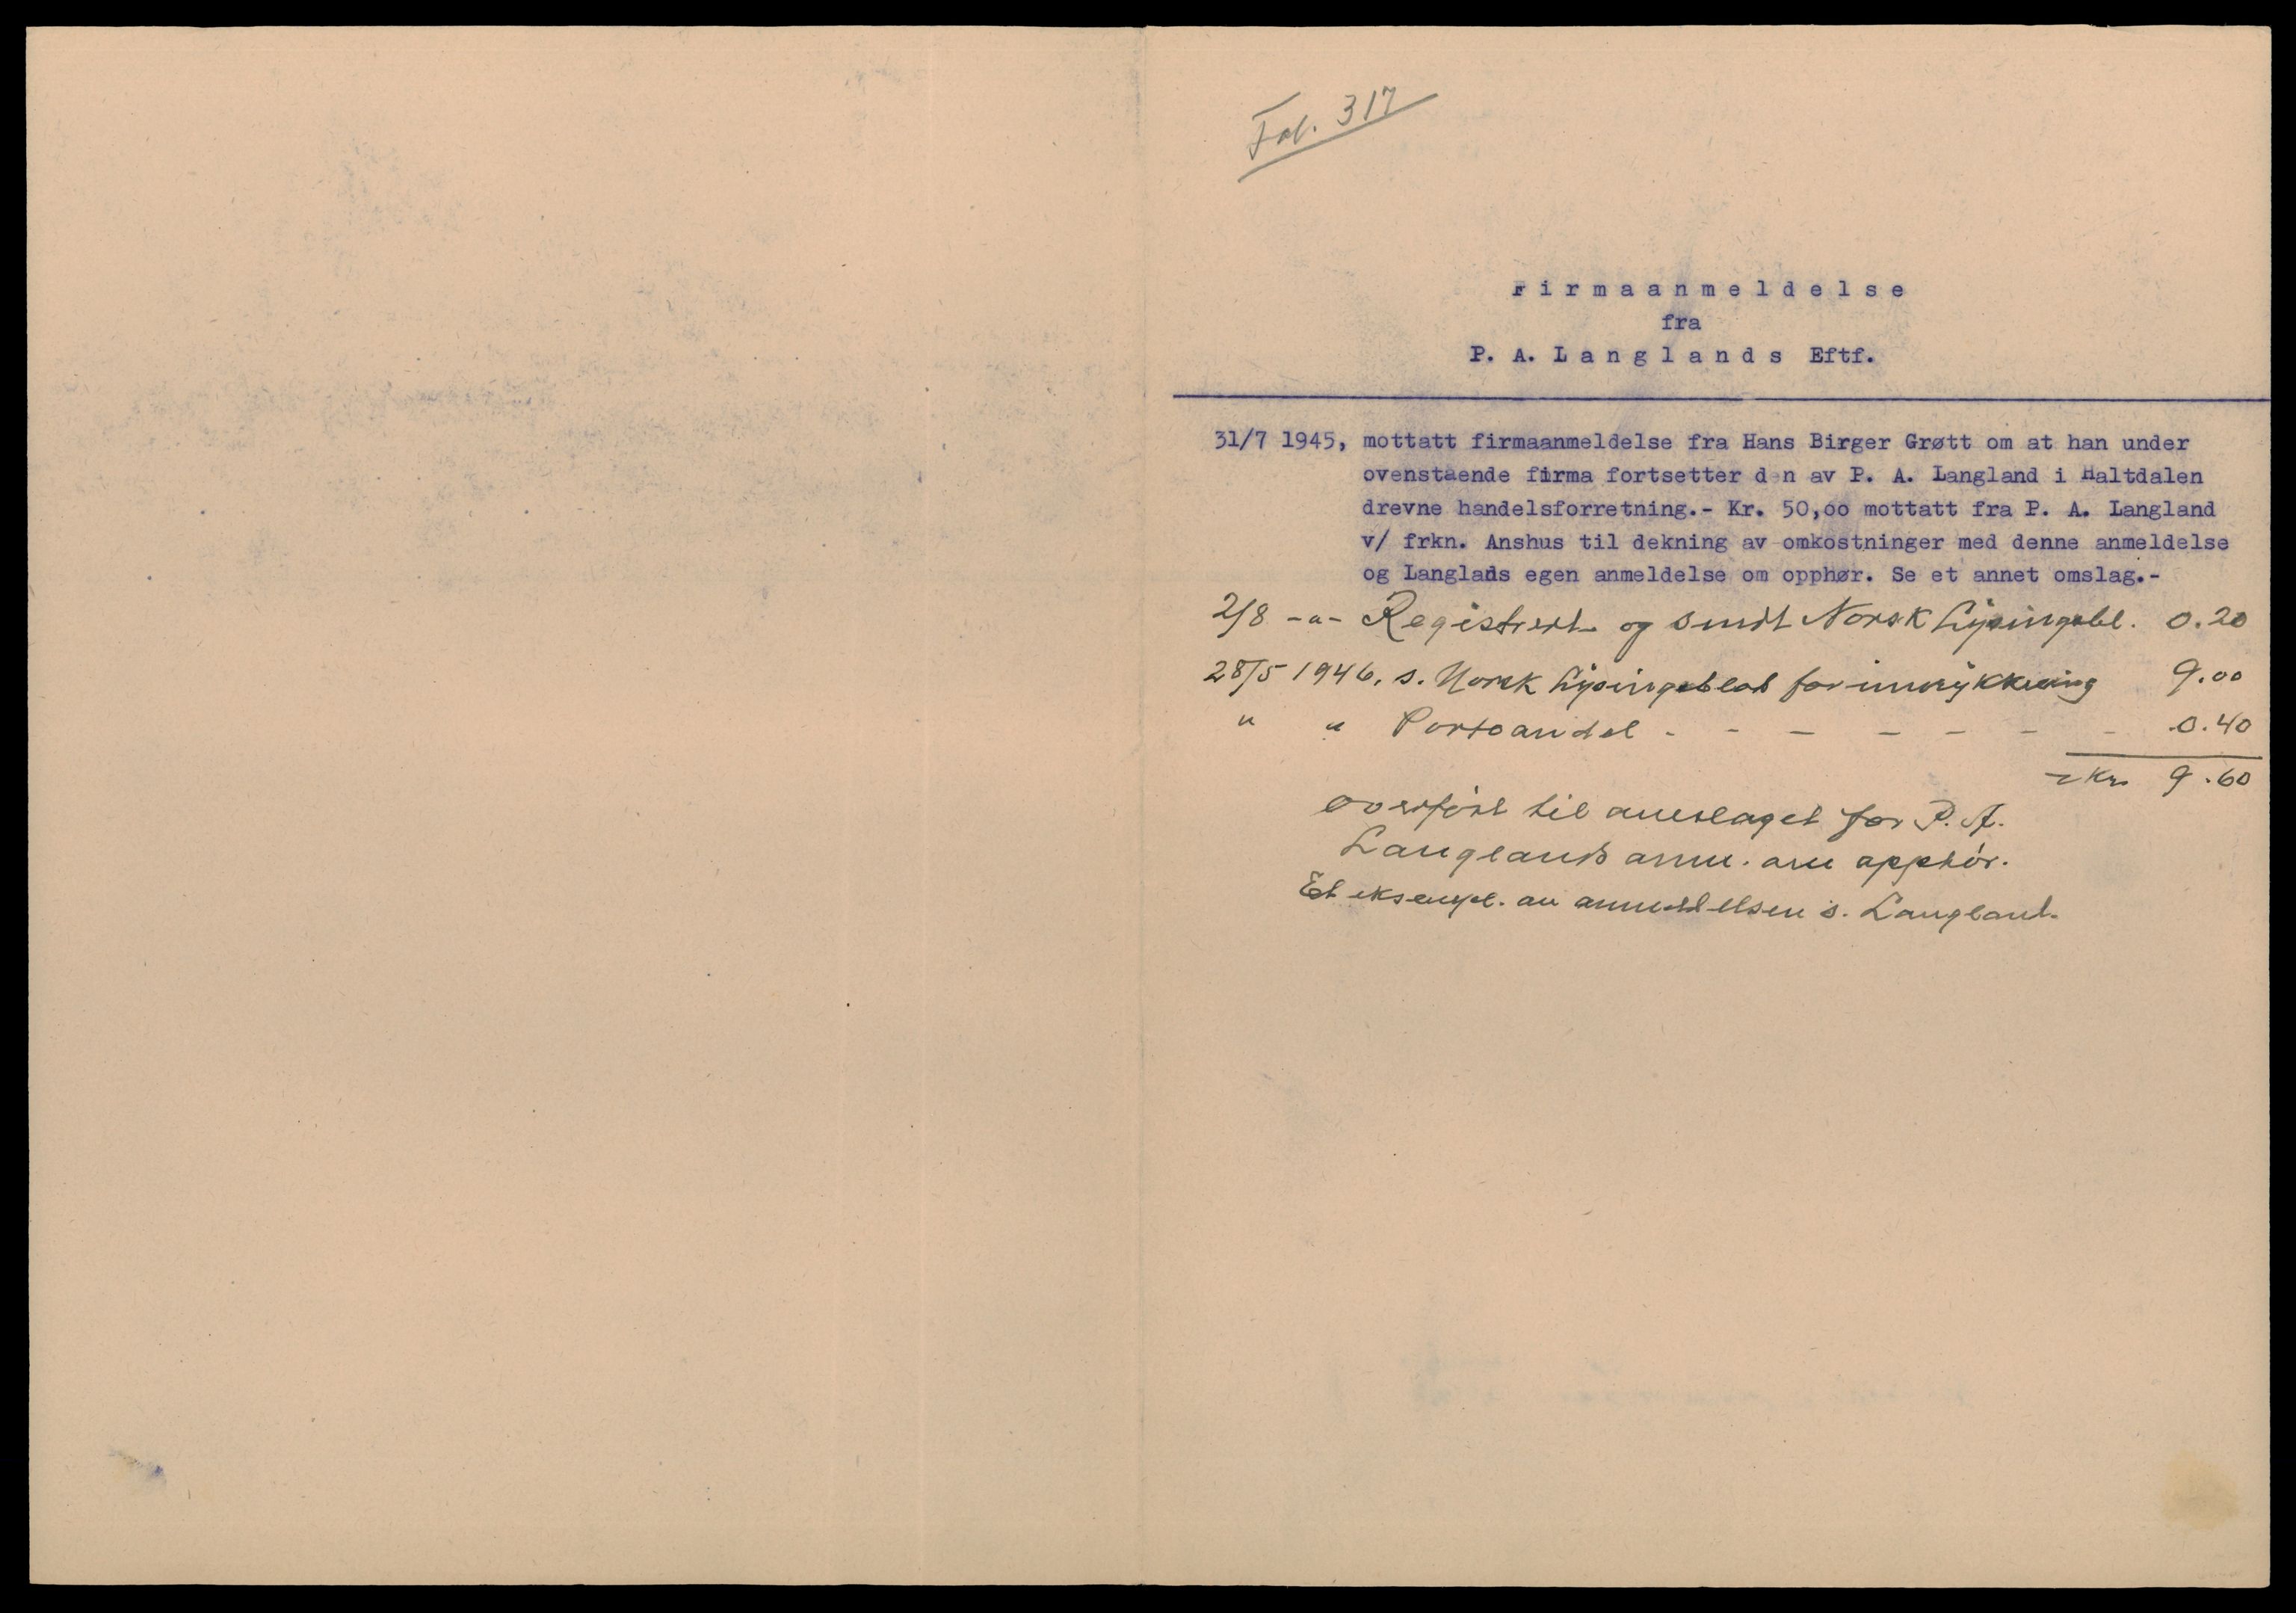 Fol. 317
Firmaanmeldelse
fra
P. A. Langlands Eftf.
31/7 1945, mottatt firmaanmeldelse fra Hans Birger Grøtt om at han under
ovenstaende firma fortsetter den av P. A. Langland i Haltdalen
drevne handelsforretning.- Kr. 50,oo mottatt fra P. A. Langland
v/ frkn. Anshus til dekning av omkostninger med denne anmeldelse
og Langlands egen anmeldelse om opphør. Se et annet omslag.-
2/8 -"- Registrert og sendt Norsk Lysingsbl. 0.20
28/5 1946. s. Norsk Lysingsblad for innrykkning 9.00
" " Portoandel - - - - - - - 0.40
Kr 9.60
overført til omslaget for P. A.
Langlands anm. om opphør.
Et eksempl. av anmeldelsen s. Langland.